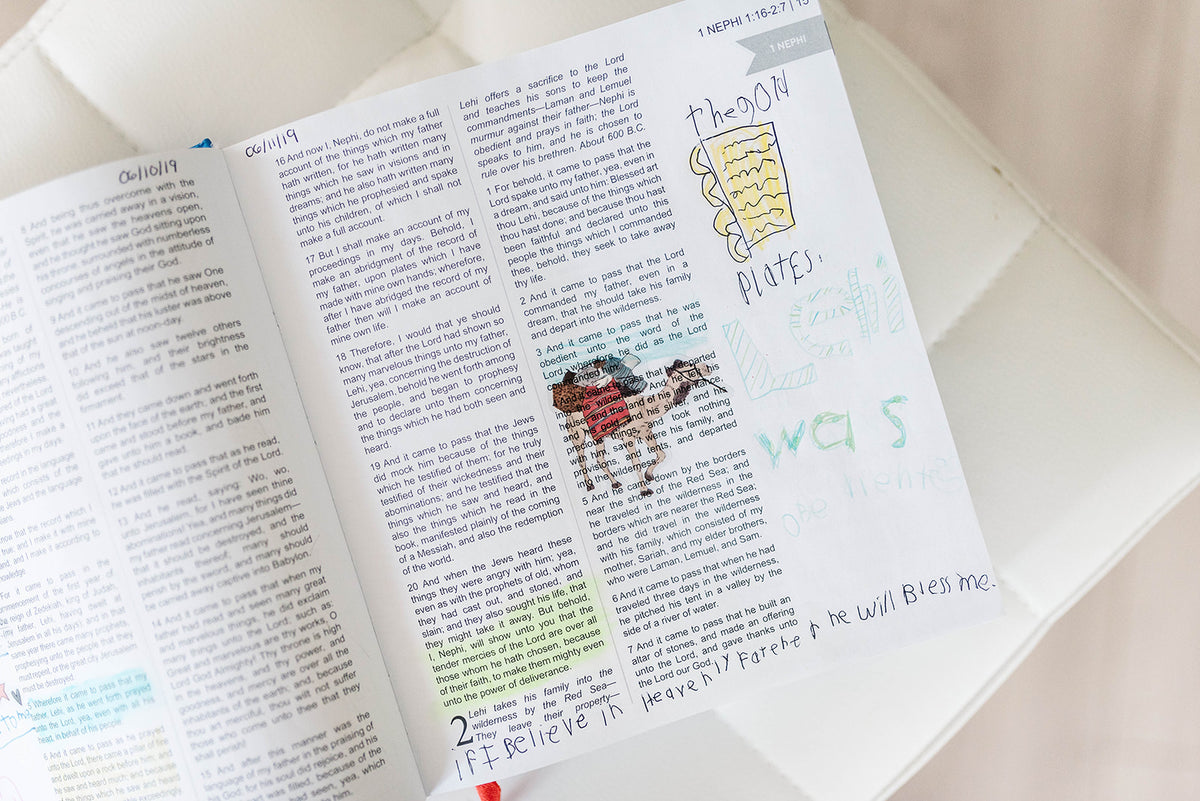 06/10/19
8 And being thus overcome with the
Spirit, he was carried away in a vision,
even that he saw the heavens open,
and he thought he saw God sitting upon
his throne, surrounded with numberless
concourses of angels in the attitude of
singing and praising their God.
9 And it came to pass that he saw One
descending out of the midst of heaven,
and he beheld that his luster was above
that of the sun at noon-day.
10 And he also saw twelve others
following him, and their brightness
did exceed that of the stars in the
firmament.
11 And they came down and went forth
upon the face of the earth; and the first
came and stood before my father, and
gave unto him a book, and bade him
that he should read.
12 And it came to pass that as he read,
he was filled with the Spirit of the Lord.
13 And he read, saying: Wo, wo,
unto Jerusalem, for I have seen thine
abominations! Yea, and many things did
my father read concerning Jerusalem—
that it should be destroyed, and the
inhabitants thereof; many should
perish by the sword, and many should
be carried away captive into Babylon.
14 And it came to pass that when my
father had read and seen many great
and marvelous things, he did exclaim
many things unto the Lord; such as:
Great and marvelous are thy works, O
Lord God Almighty! Thy throne is high
in the heavens, and thy power, and
goodness, and mercy are over all the
inhabitants of the earth; and, because
thou art merciful, thou wilt not suffer
those who come unto thee that they
shall perish!
15 And after this manner was the
language of my father in the praising of
06/11/19
16 And now I, Nephi, do not make a full
account of the things which my father
hath written, for he hath written many
things which he saw in visions and in
dreams; and he also hath written many
things which he prophesied and spake
unto his children, of which I shall not
make a full account.
17 But I shall make an account of my
proceedings in my days. Behold, I
make an abridgment of the record of
my father, upon plates which I have
made with mine own hands; wherefore,
after I have abridged the record of my
father then will I make an account of
mine own life.
18 Therefore, I would that ye should
know, that after the Lord had shown so
many marvelous things unto my father,
Lehi, yea, concerning the destruction of
Jerusalem, behold he went forth among
the people, and began to prophesy
and to declare unto them concerning
the things which he had both seen and
heard.
19 And it came to pass that the Jews
did mock him because of the things
which he testified of them; for he truly
testified of their wickedness and their
abominations; and he testified that the
things which he saw and heard, and
also the things which he read in the
book, manifested plainly of the coming
of a Messiah, and also the redemption
of the world.
20 And when the Jews heard these
things they were angry with him; yea,
even as with the prophets of old, whom
they had cast out, and stoned, and
slain; and they also sought his life, that
they might take it away. But behold,
I, Nephi, will show unto you that the
tender mercies of the Lord are over all
those whom he hath chosen, because
of their faith, to make them mighty even
unto the power of deliverance.
2 Lehi takes his family into the
wilderness by the Red Sea—
They leave their property—
Lehi offers a sacrifice to the Lord
and teaches his sons to keep the
commandments—Laman and Lemuel
murmur against their father—Nephi is
obedient and prays in faith; the Lord
speaks to him, and he is chosen to
rule over his brethren. About 600 B.C.
1 For behold, it came to pass that the
Lord spake unto my father, yea, even in
a dream, and said unto him: Blessed art
thou Lehi, because of the things which
thou hast done; and because thou hast
been faithful and declared unto this
people the things which I commanded
thee, behold, they seek to take away
thy life.
2 And it came to pass that the Lord
commanded my father, even in a
dream, that he should take his family
and depart into the wilderness.
3 And it came to pass that he was
obedient unto the word of the
Lord, wherefore he did as the Lord
commanded him.
4 And it came to pass that he departed
into the wilderness. And he left his
house, and the land of his inheritance,
and his gold, and his silver, and his
precious things, and took nothing
with him, save it were his family, and
provisions, and tents, and departed
into the wilderness.
5 And he came down by the borders
near the shore of the Red Sea; and
he traveled in the wilderness in the
borders which are nearer the Red Sea;
and he did travel in the wilderness
with his family, which consisted of my
mother, Sariah, and my elder brothers,
who were Laman, Lemuel, and Sam.
6 And it came to pass that when he had
traveled three days in the wilderness,
he pitched his tent in a valley by the
side of a river of water.
7 And it came to pass that he built an
altar of stones, and made an offering
unto the Lord, and gave thanks unto
the Lord our God.
1 NEPHI 1:16-2:7 | 15
1 NEPHI
the gold
Plates.
Lehi
was
if I Believe in Heavenly Father he will Bless me.